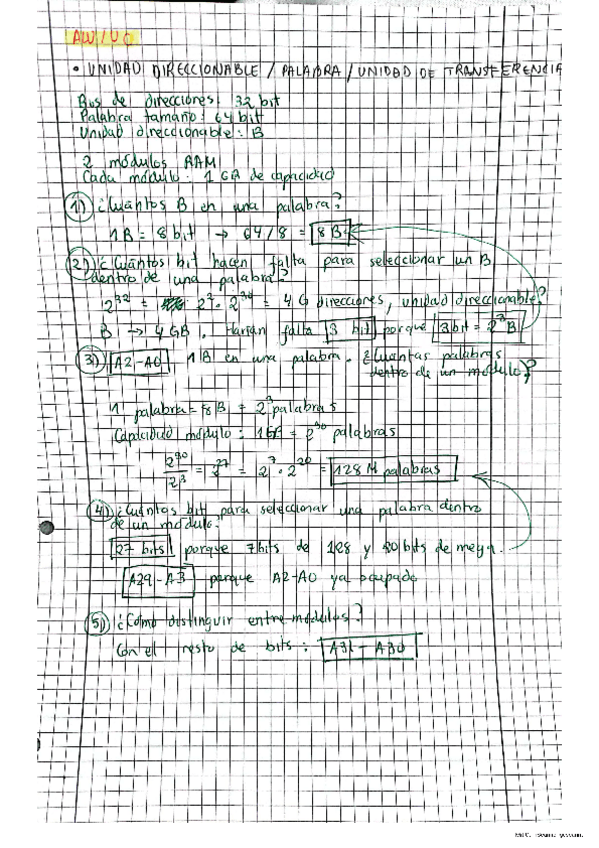 AW/UC
• UNIDAD DIRECCIONABLE / PALABRA / UNIDAD DE TRANSFERENCIA
Bus de direcciones: 32 bit
Palabra tamaño: 64 bit
Unidad direccionable: B
2 módulos RAM
Cada módulo: 1 GB de capacidad
1) ¿Cuántos B en una palabra?
1B = 8 bit → 64/8 = 8B
2) ¿Cuántos bit hacen falta para seleccionar un B
dentro de una palabra?
2^32 = 2^2 · 2^30 = 4 G direcciones, unidad direccionable:
B → 4 GB. Harían falta 3 bit porque 3bit = 2^3 B
3) A2-A0 1B en una palabra. ¿Cuántas palabras
dentro de un módulo?
1 palabra = 8B = 2^3 palabras
Capacidad módulo: 1G = 2^30 palabras
2^30/2^3 = 2^27 = 2^7 · 2^20 = 128 M palabras
4) ¿Cuántos bit para seleccionar una palabra dentro
de un módulo?
27 bits porque 7bits de 128 y 20 bits de mega.
A29-A3 porque A2-A0 ya ocupado
5) ¿Cómo distinguir entre módulos?
Con el resto de bits: A31-A30